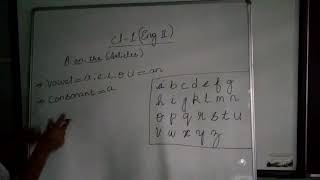 cl-1 (Eng II)
A or the (Articles)
→ Vowel = a. e. i. o u = an
→ Consonant = a
a b c d e f g
h i j k l m n
o p q r s t u
v w x y z